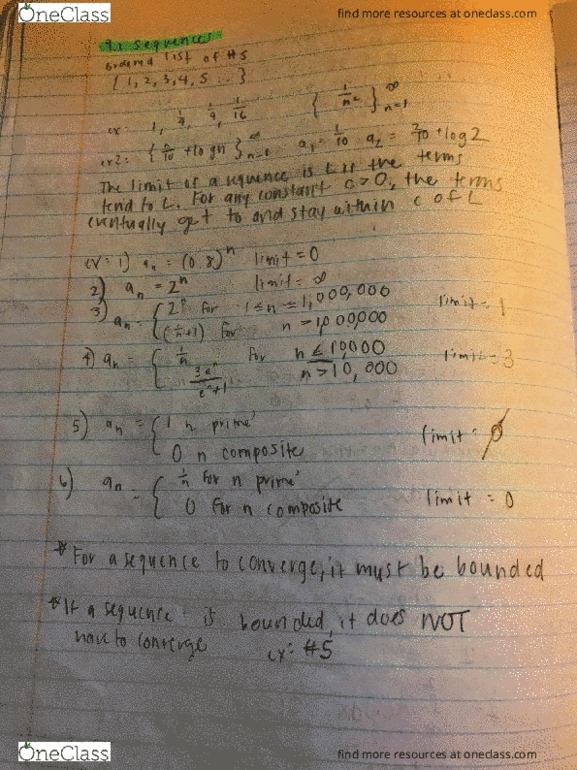 OneClass
find more resources at oneclass.com
9.1 sequences
ordered list of #s
{ 1, 2, 3, 4, 5 ... }
ex: 1, 1/4, 1/9, 1/16 { 1/n² }∞ n=1
ex 2: { n/10 + log n }∞ n=1 a₁ = 1/10 a₂ = 2/10 + log 2
The limit of a sequence is L if the terms
tend to L. For any constant c > 0, the terms
eventually get to and stay within c of L
ex: 1) aₙ = (0.8)ⁿ limit = 0
2) aₙ = 2ⁿ limit = ∞
3) aₙ = { 2ⁿ for 1 ≤ n ≤ 1,000,000 limit = 1
(1/n + 1) for n > 1,000,000
4) aₙ = { 1/n for n ≤ 10,000 limit = 3
3eⁿ/eⁿ+1 n > 10,000
5) aₙ = { 1 n prime limit = ∅
0 n composite
6) aₙ = { 1/n for n prime
0 for n composite limit = 0
* For a sequence to converge, it must be bounded
* If a sequence is bounded, it does NOT
have to converge ex: #5
OneClass
find more resources at oneclass.com